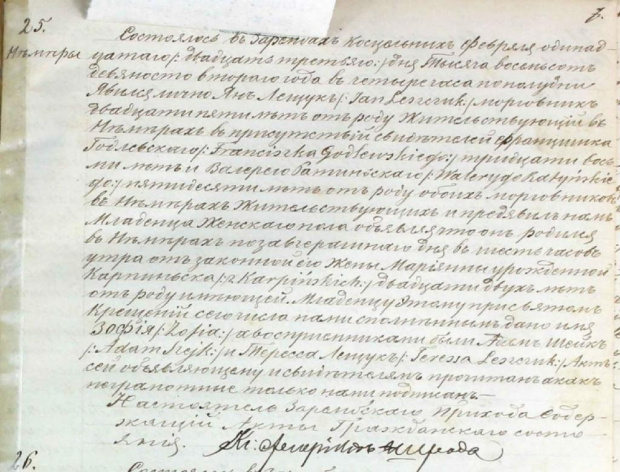 25.
Нѣмиры
Состоялось въ Зарембахъ Косцельныхъ Февраля одинад-
цатаго /: двадцать третьяго:/ дня тысяча восемьсотъ
девяносто втораго года въ четыре часа пополудни
Явился лично Янъ Лещукъ /: Jan Leszczuk:/ морговникъ
двадцати пяти лѣтъ отъ роду жительствующій въ
Нѣмирахъ въ присутствіи свидѣтелей Францишка
Годлевскаго /: Franciszka Godlewskiego:/ тридцати вось-
ми лѣтъ и Валерего /: Waleryego
go:/ пятидесяти лѣтъ отъ роду обоихъ морговниковъ
въ Нѣмирахъ жительствующихъ и предъявилъ намъ
Младенца Женскаго пола объявляя что онъ родился
въ Нѣмирахъ позавчерашняго дня въ шесть часовъ
утра отъ законной его Жены Маріянны урожденной
Карпиньска /: z Karpińskich:/ двадцати двухъ лѣтъ
отъ роду имеющей. Младенцу этому при святомъ
Крещеніи сего числа нами исполненномъ дано имя
Зофія /: Zofia:/ а восприемниками были Адамъ Шейкъ
/: Adam Szejk:/ и Тересса Лещукъ /: Teressa Leszczuk:/ Актъ
сей объявляющему и свидѣтелямъ прочитанъ а какъ
неграмотные только нами подписанъ —
Настоятель Зарембскаго Прихода Содер-
жащій Акты Гражданскаго состо-
янія. Кс.
26.